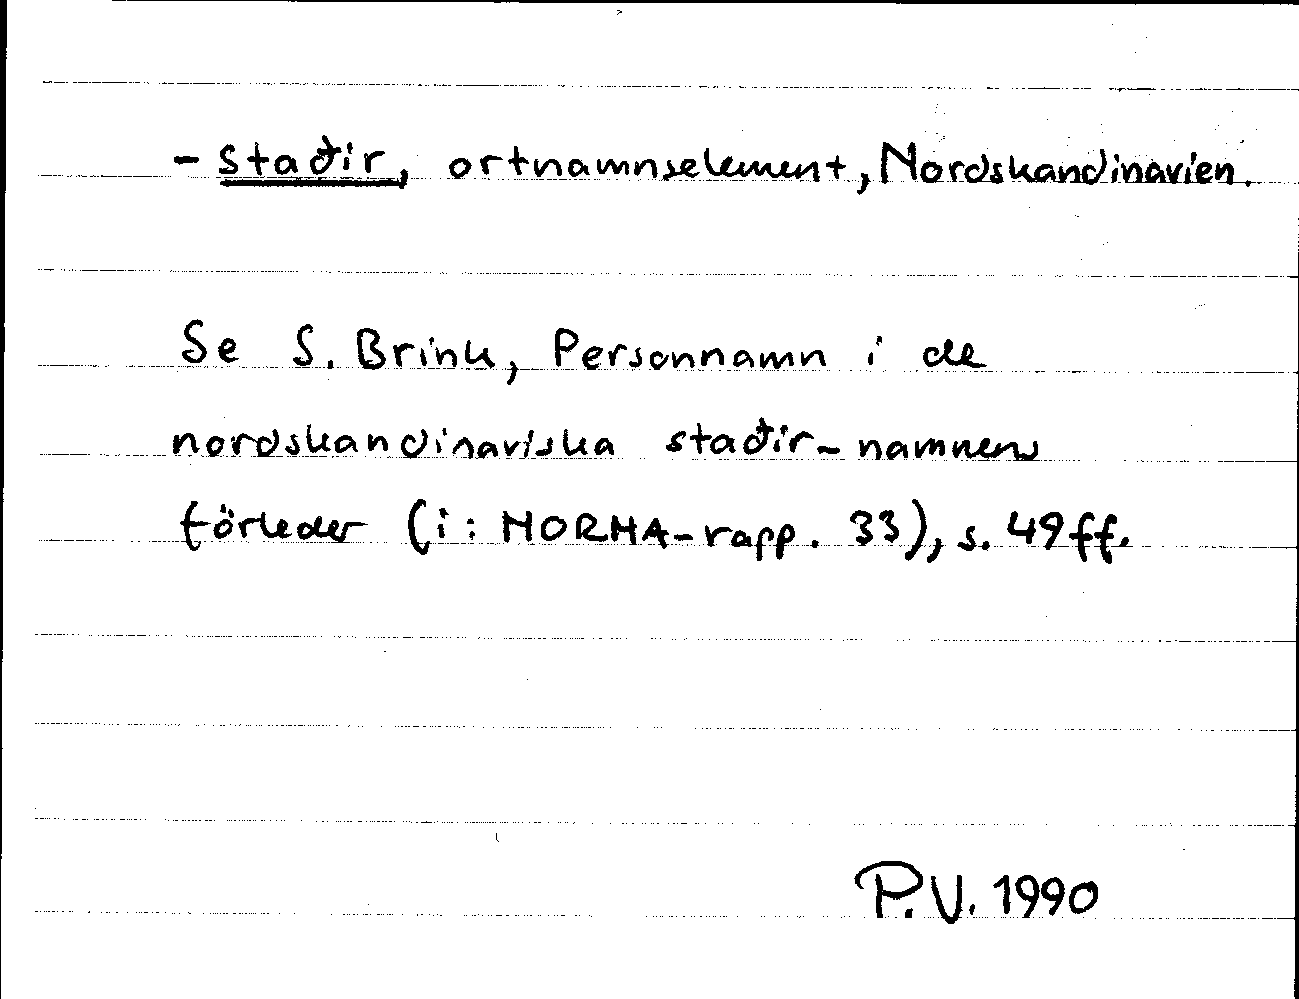 - staðir, ortnamnselement, Nordskandinavien.
Se S. Brink, Personnamn i de
nordskandinaviska staðir-namnens
förleder (i: NORNA-rapp. 33), s. 49ff.
P.V. 1990